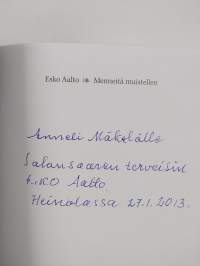 Esko Aalto ❧ Menneitä muistellen
Anneli Mäkelälle
Salansaaren terveisin
Esko Aalto
Heinolassa 27.1.2013.